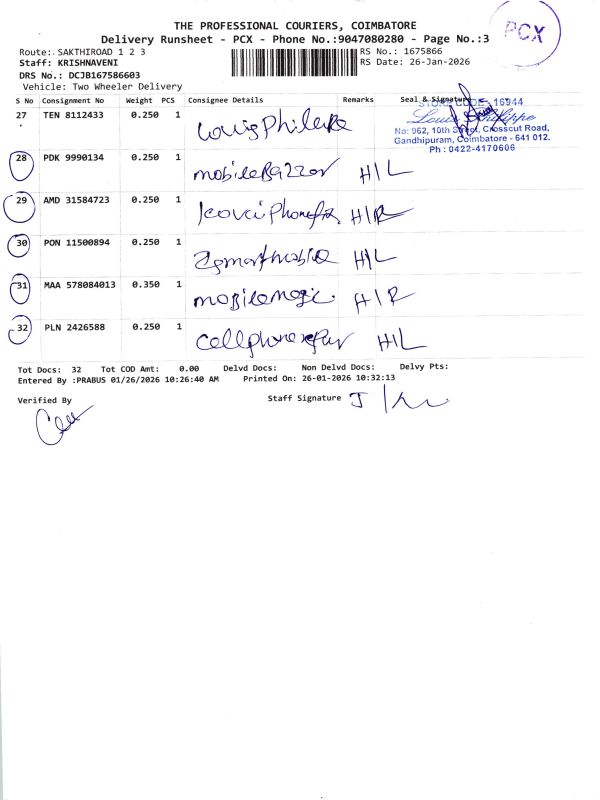 THE PROFESSIONAL COURIERS, COIMBATORE
Delivery Runsheet - PCX - Phone No.:9047080280 - Page No.:3
PCX
Route: SAKTHIROAD 1 2 3
RS No.: 1675866
Staff: KRISHNAVENI
RS Date: 26-Jan-2026
DRS No.: DCJB167586603
Vehicle: Two Wheeler Delivery
S No Consignment No Weight PCS Consignee Details Remarks Seal & Signature
27 TEN 8112433 0.250 1
16944
No: 962, 10th Street, Crosscut Road,
Gandhipuram, Coimbatore - 641 012.
Ph : 0422-4170606
28 PDK 9990134 0.250 1 H/L
29 AMD 31584723 0.250 1
30 PON 11500894 0.250 1 H/L
31 MAA 578084013 0.350 1
32 PLN 2426588 0.250 1 H/L
Tot Docs: 32 Tot COD Amt: 0.00 Delvd Docs: Non Delvd Docs: Delvy Pts:
Entered By :PRABUS 01/26/2026 10:26:40 AM Printed On: 26-01-2026 10:32:13
Verified By
Staff Signature